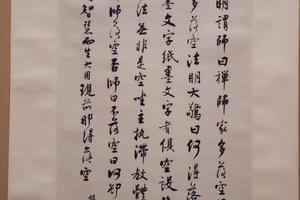 明謂師曰禪師家多落空
多落空法明大驚曰何得落
墨文字紙墨文字者俱空設
法無非是空坐主執滯教體
師落空否師曰不落空曰何卻
智慧而生大用現前那得落空